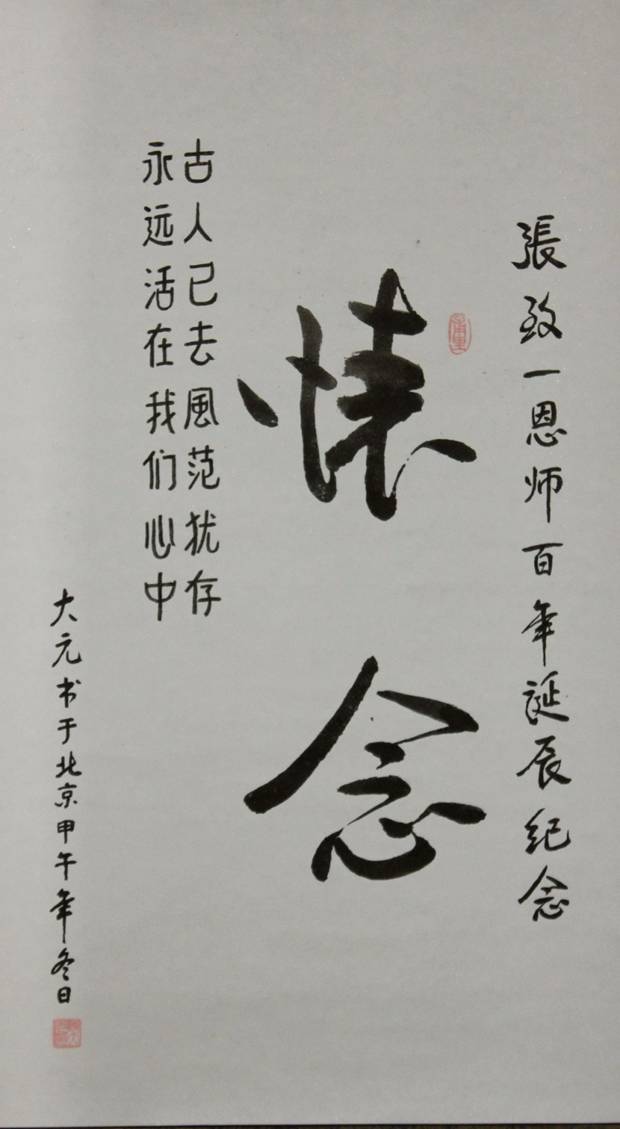 張致一恩师百年诞辰纪念
懐念
古人已去風范犹存
永远活在我们心中
大元书于北京甲午年冬日